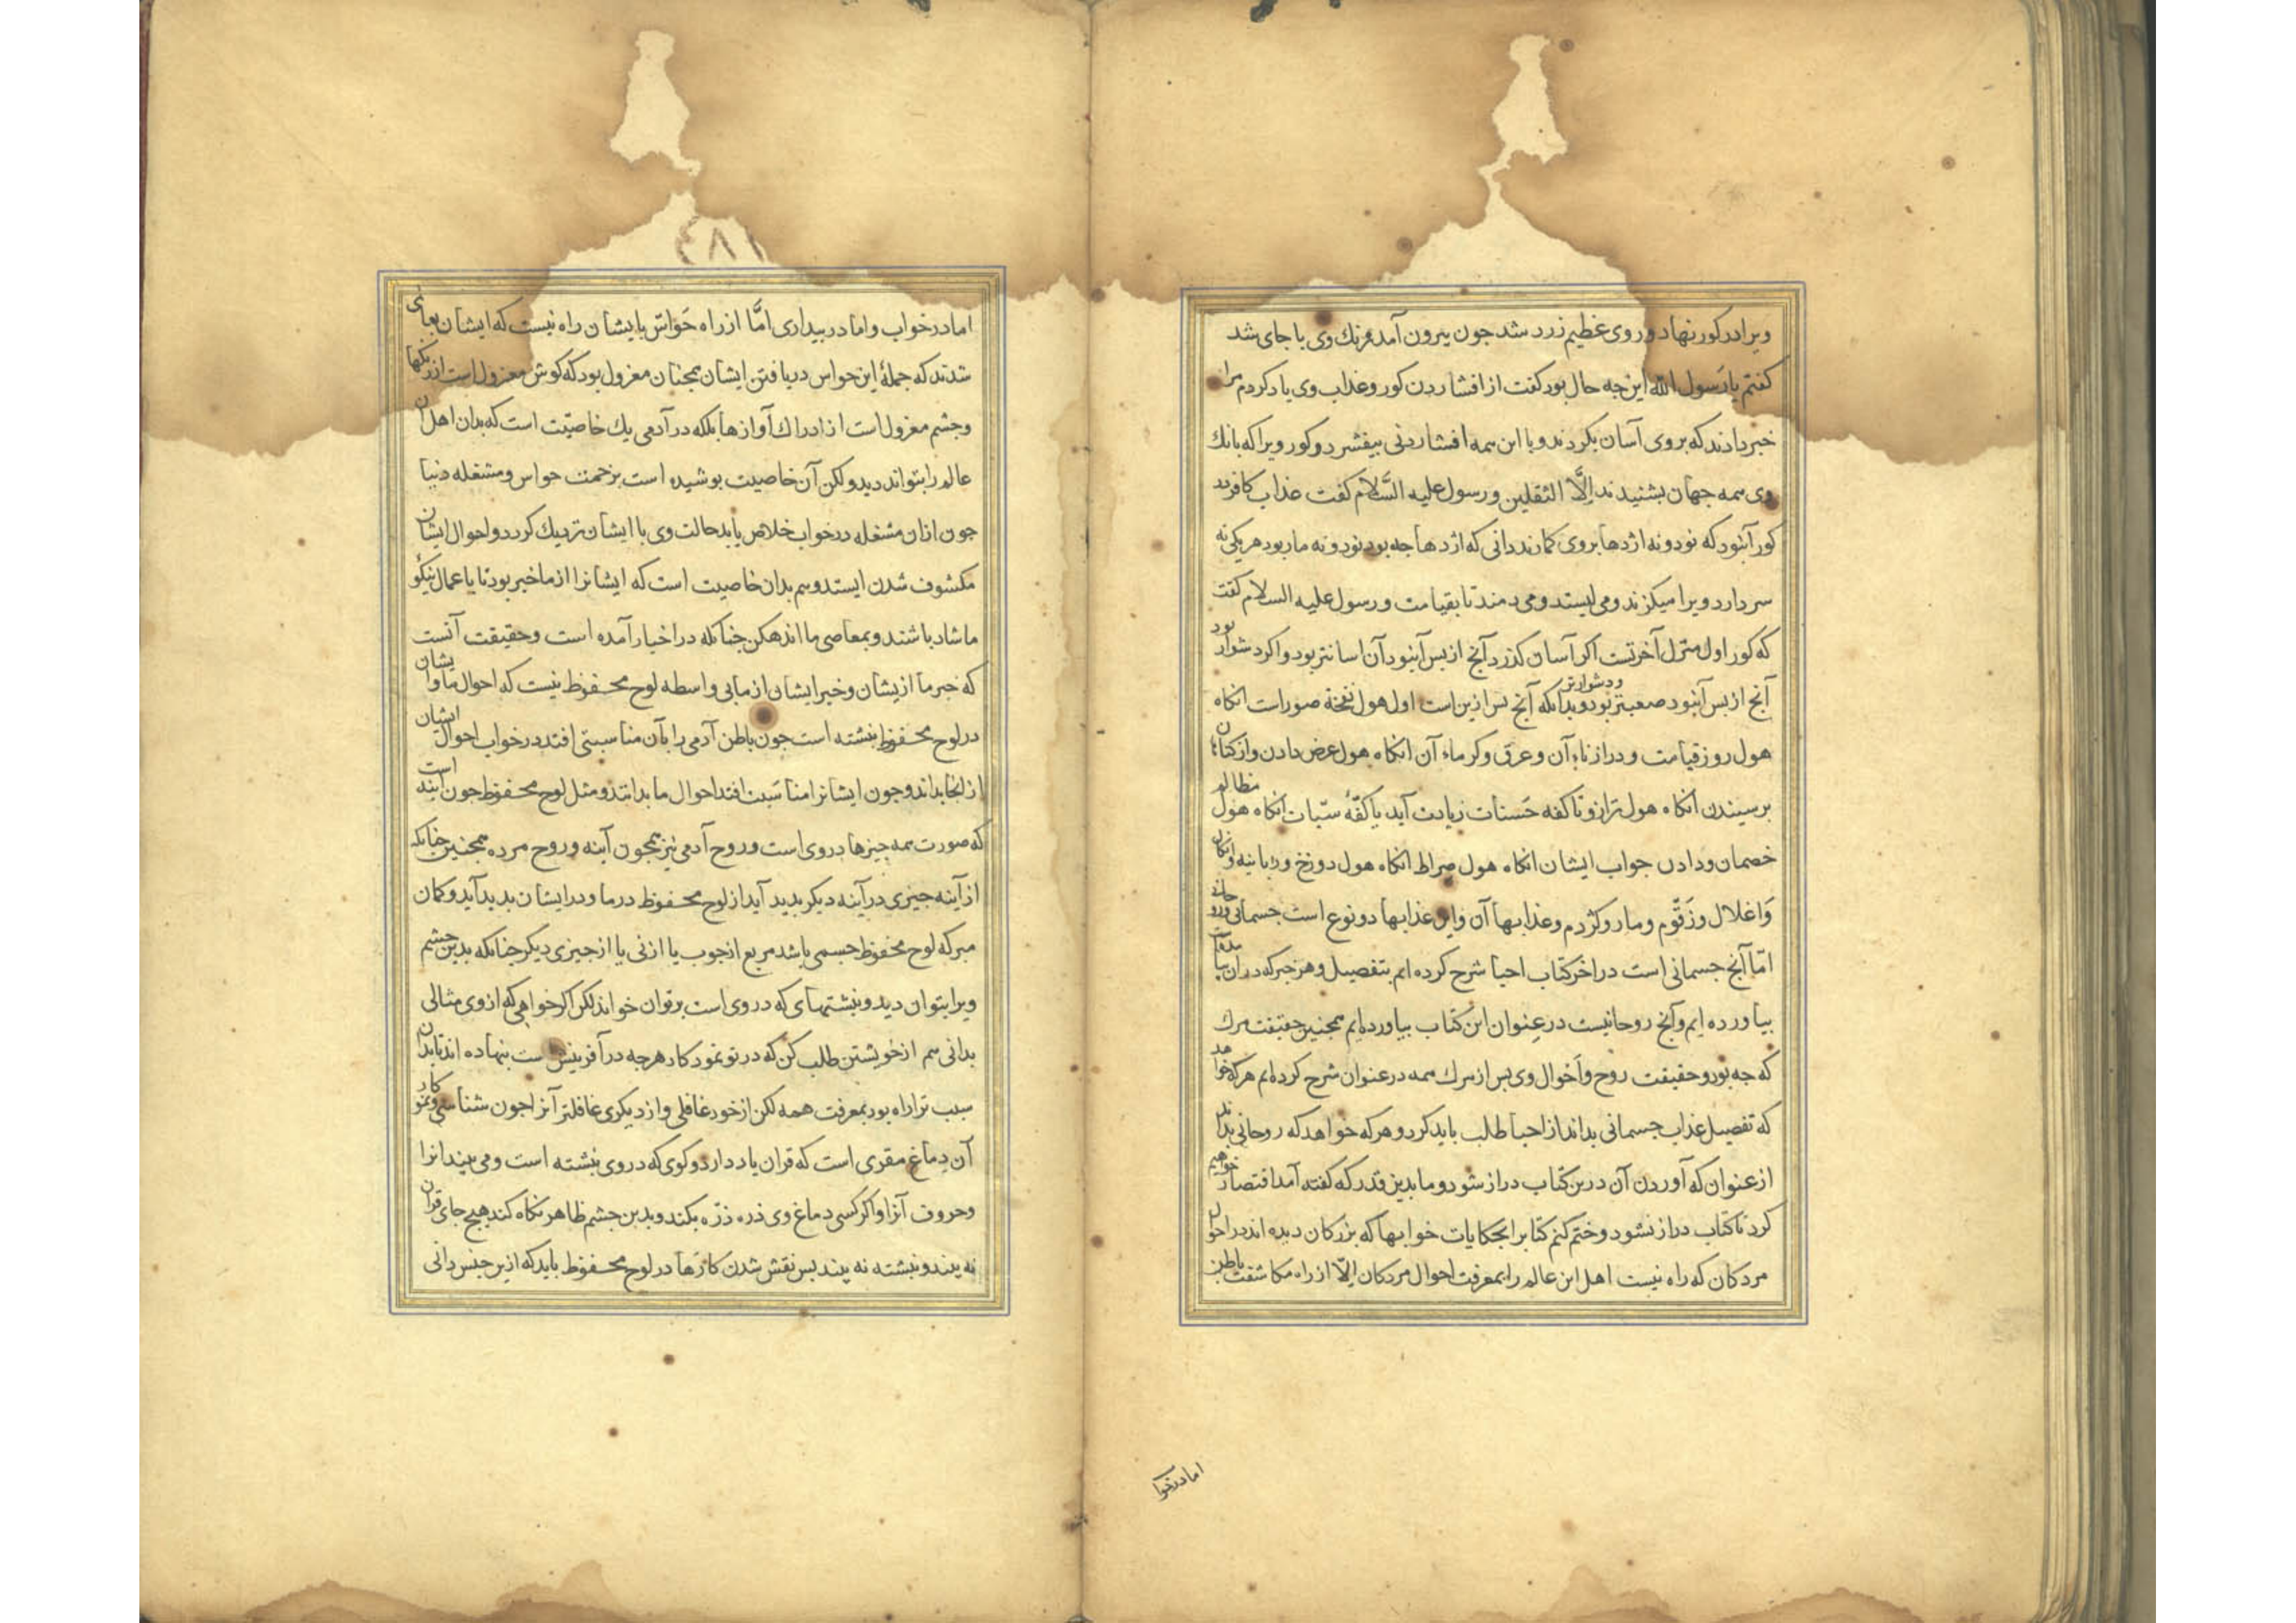 ویرا در کور نهاد و روی عظیم زرد شد جون بیرون آمد رنك وی با جای شد
کفتم یا رَسول الله این جه حال بود کفت از افشاردن کور و عذاب وی یاد کردم مرا
خبر دادند که بروی آسان بکردند و با این همه افشاردنی بیفشرد و کور ویرا که بانك
وی همه جهان بشنیدند اِلَّا الثقلین و رسول علیه السَّلام کفت عذاب کافر در
کور آنبود که نود و نه اژدها بروی کمارند دانی که اژدها جه بود نود و نه مار بود هر یکی نه
سر دارد ویرا میکزند و می لیسند و می دمند تا بقیامت و رسول علیه السلام کفت
که کور اول منزل آخرتست اکر آسان کذرد آنج از بس آنبود آن اسانتر بود و اکر دشوار بود
آنج از بس آنبود صعبتر و دشوارتر بود و بدانکه آنج بس ازین است اول هول نفخهٔ صور است انکاه
هول روز قیامت و درازناء آن و عرق و کرماء آن انکاه هول عرض دادن و از کناهان
برسیدن انکاه هول ترازو تا کفه حَسنات زیادت آید یا کفّهٔ سیّات انکاه هول مظالم
خصمان و دادن جواب ایشان انکاه هول صراط انکاه هول دوزخ و زبانیه و انکال
وَاغلال و زَقّوم و مار و کژدم و عذابها آن و این عذابها دو نوع است جسمانی و روحانی
امّا آنج جسمانی است در اخر کتاب احیا شرح کرده ایم بتفصیل و هر خبر که در ان بیامدست
بیاورده ایم و آنج روحانیست در عِنوان این کتاب بیاورده ایم همجنین حقیقت مرك
که جه بود و حقیقت روح و اَحوال وی بس از مرك همه در عنوان شرح کرده ایم هر که خواهد
که تفصیل عذاب جسمانی بداند از احیا طلب باید کرد و هر که خواهد که روحانی بداند
از عنوان که آوردن آن درین کتاب دراز شود و ما بدین قدر که کفته آمد اقتصار خواهیم
کرد تا کتاب دراز نشود و ختم کنم کتاب را بحکایات خوابها که بزرکان دیده اند در احوال
مردکان که راه نیست اهل این عالم را بمعرفت احوال مردکان اِلّا از راه مکاشفت باطن
اما در خواب
٤٨١
اما در خواب و اما در بیداری امَّا از راه حَواسّ بایشان راه نیست که ایشان بعالمی
شدند که جملهٔ این حواس در یافتن ایشان همجنان معزول بود که کوش معزول است از رنکها
و جشم معزول است از ادراك آوازها بلکه در آدمی یك خاصیّت است که بدان اهل آن
عالم را بتواند دید ولکن آن خاصیت بوشیده است بزحمت حواس و مشغله دنیا
جون ازان مشغله در خواب خلاص یابد حالت وی با ایشان نزدیك کردد و احوال ایشان
مکشوف شدن ایستد و هم بدان خاصیت است که ایشانرا از ما خبر بود تا باعمال نیکو
ما شاد باشند و بمعاصی ما اندهکن جنانکه در اخبار آمده است و حقیقت آنست
که خبر ما ازیشان و خبر ایشان از ما بی واسطه لوح محفوظ نیست که احوال ما و ایشان
در لوح محفوظ نبشته است جون باطن آدمی را بآن مناسبتی افتد در خواب احوال ایشان
از انجا بداند و جون ایشانرا مناسَبت افتد احوال ما بدانند و مثل لوح محفوظ جون اینه است
که صورت همه چیزها در وی است و روح آدمی نیز همجون آینه و روح مرده همجنین جنانکه
از آینه جیزی در آینه دیکر بدید آید از لوح محفوظ در ما و در ایشان بدید آید و کمان
مبر که لوح محفوظ جسمی باشد مربع از جوب یا از نی یا از جیزی دیکر جنانکه بدین جشم
ویرا بتوان دید و نبشتهای که در وی است برتوان خواند لکن اکر خواهی که از وی مثالی
بدانی هم از خویشتن طلب کن که در تو نمودکار هرجه در آفرینش است بنهاده اند تا بدان
سبب ترا راه بود بمعرفت همه لکن از خود غافلی و از دیکری غافلتر آنرا جون شناسی و نمودکار
آن دِماغ مقری است که قران یاد دارد و کوی که در وی نبشته است و می بیند انرا
و حروف آنرا و اکر کسی دماغ وی ذره ذرّه بکند و بدین جشم ظاهر نکاه کند هیج جای قران
نه بیند و نبشته نه بیند بس نقش شدن کارها در لوح محفوظ باید که ازین جنس دانی